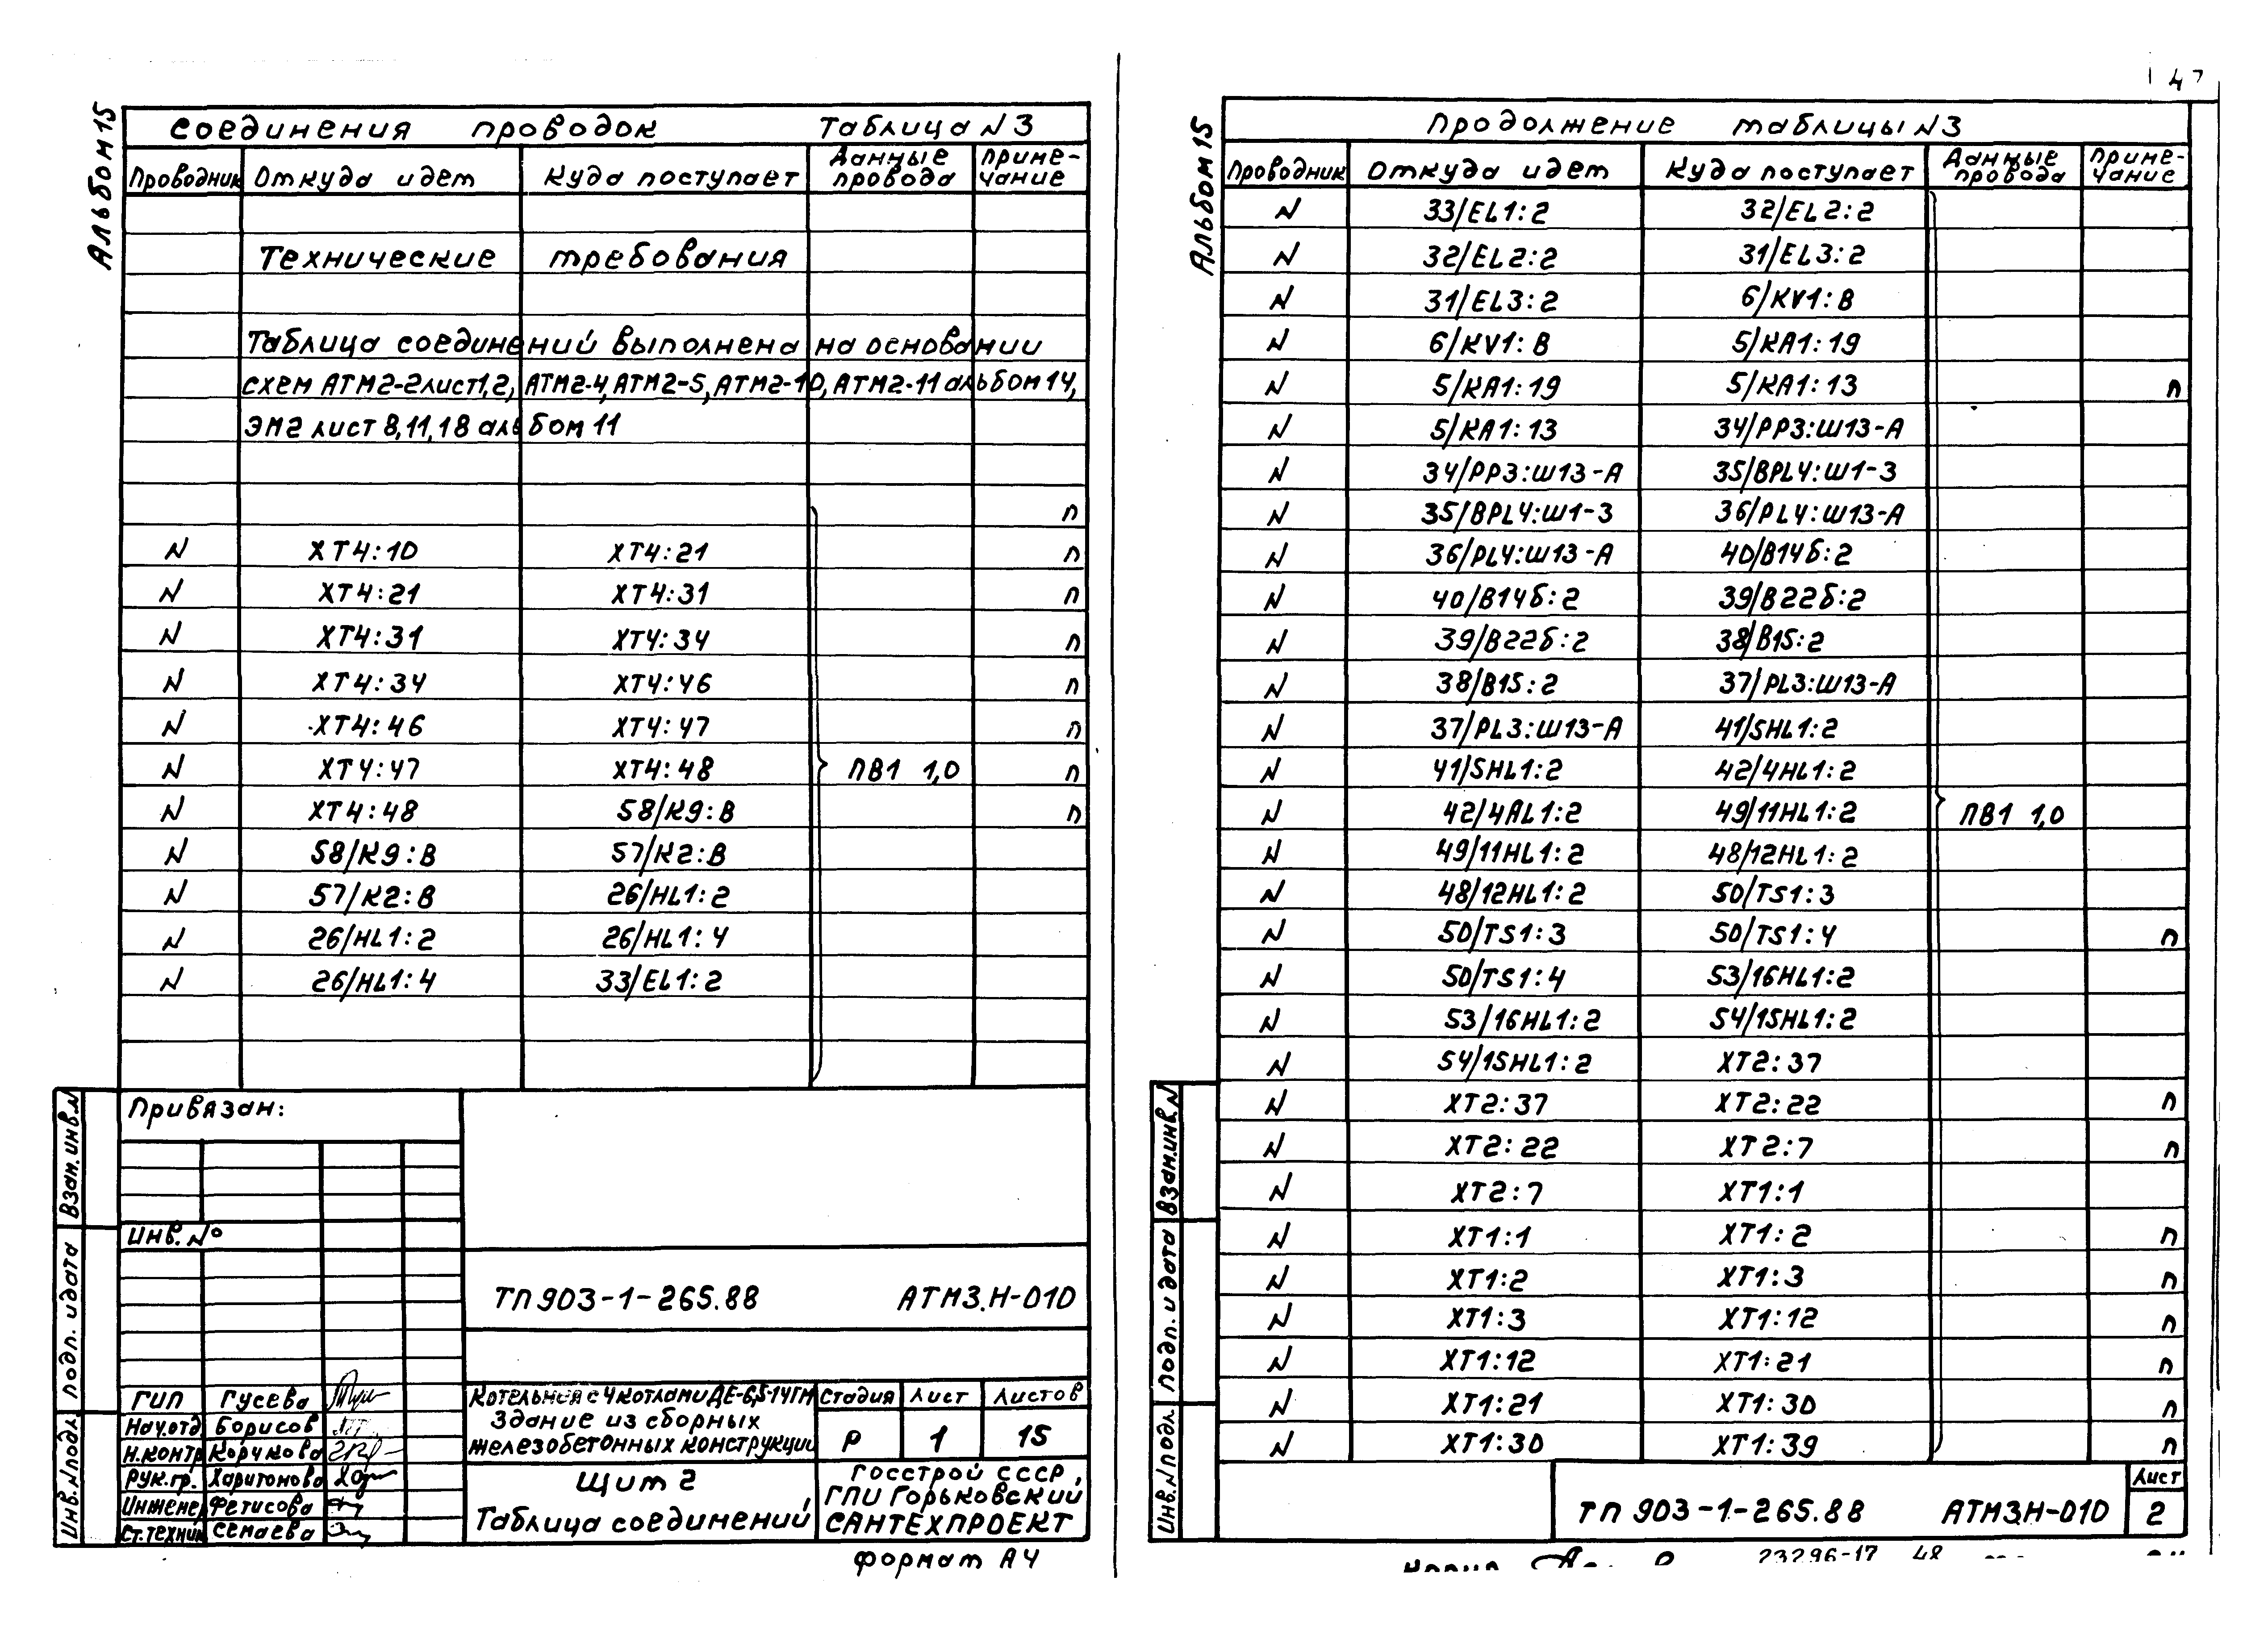 Альбом 15
Соединения проводок Таблица N3
Проводник Откуда идет Куда поступает Данные провода Примечание
Технические требования
Таблица соединений выполнена на основании
схем АТМ2-2лист1,2, АТМ2-4, АТМ2-5, АТМ2-10, АТМ2-11 альбом 14,
ЭМ2 лист 8,11,18 альбом 11
п
N ХТ4:10 ХТ4:21 п
N ХТ4:21 ХТ4:31 п
N ХТ4:31 ХТ4:34 п
N ХТ4:34 ХТ4:46 п
N ХТ4:46 ХТ4:47 п
N ХТ4:47 ХТ4:48 ПВ1 1,0 п
N ХТ4:48 58/К9:В п
N 58/К9:В 57/К2:В
N 57/К2:В 26/HL1:2
N 26/HL1:2 26/HL1:4
N 26/HL1:4 33/EL1:2
Привязан:
Инв. №
ТП 903-1-265.88 АТМ3.Н-010
ГИП Гусева
Нач.отд. Борисов
Н.контр Корчкова
Рук.гр. Харитонова
Инженер Фетисова
Ст.техник Семаева
Котельная с 4 котлами ДЕ-6,5-14ГМ
Здание из сборных
железобетонных конструкций
Стадия Лист Листов
Р 1 15
Щит 2
Таблица соединений
Госстрой СССР,
ГПИ Горьковский
САНТЕХПРОЕКТ
Взам.инв.N
Подп. и дата
Инв.Nподл.
Формат А4
47
Альбом 15
Продолжение таблицы N3
Проводник Откуда идет Куда поступает Данные провода Примечание
N 33/EL1:2 32/EL2:2
N 32/EL2:2 31/EL3:2
N 31/EL3:2 6/KV1:В
N 6/KV1:В 5/КА1:19
N 5/КА1:19 5/КА1:13 п
N 5/КА1:13 34/РР3:Ш13-А
N 34/РР3:Ш13-А 35/BPL4:Ш1-3
N 35/BPL4:Ш1-3 36/PL4:Ш13-А
N 36/PL4:Ш13-А 40/В14б:2
N 40/В14б:2 39/В22б:2
N 39/В22б:2 38/В15:2
N 38/В15:2 37/PL3:Ш13-А
N 37/PL3:Ш13-А 41/5HL1:2
N 41/5HL1:2 42/4HL1:2
N 42/4AL1:2 49/11HL1:2 ПВ1 1,0
N 49/11HL1:2 48/12HL1:2
N 48/12HL1:2 50/TS1:3
N 50/TS1:3 50/TS1:4 п
N 50/TS1:4 53/16HL1:2
N 53/16HL1:2 54/15HL1:2
N 54/15HL1:2 ХТ2:37
N ХТ2:37 ХТ2:22 п
N ХТ2:22 ХТ2:7 п
N ХТ2:7 ХТ1:1
N ХТ1:1 ХТ1:2 п
N ХТ1:2 ХТ1:3 п
N ХТ1:3 ХТ1:12 п
N ХТ1:12 ХТ1:21 п
N ХТ1:21 ХТ1:30 п
N ХТ1:30 ХТ1:39 п
ТП 903-1-265.88 АТМ3.Н-010
Лист
2
Взам.инв.N
Подп. и дата
Инв.Nподл.
23296-17 48